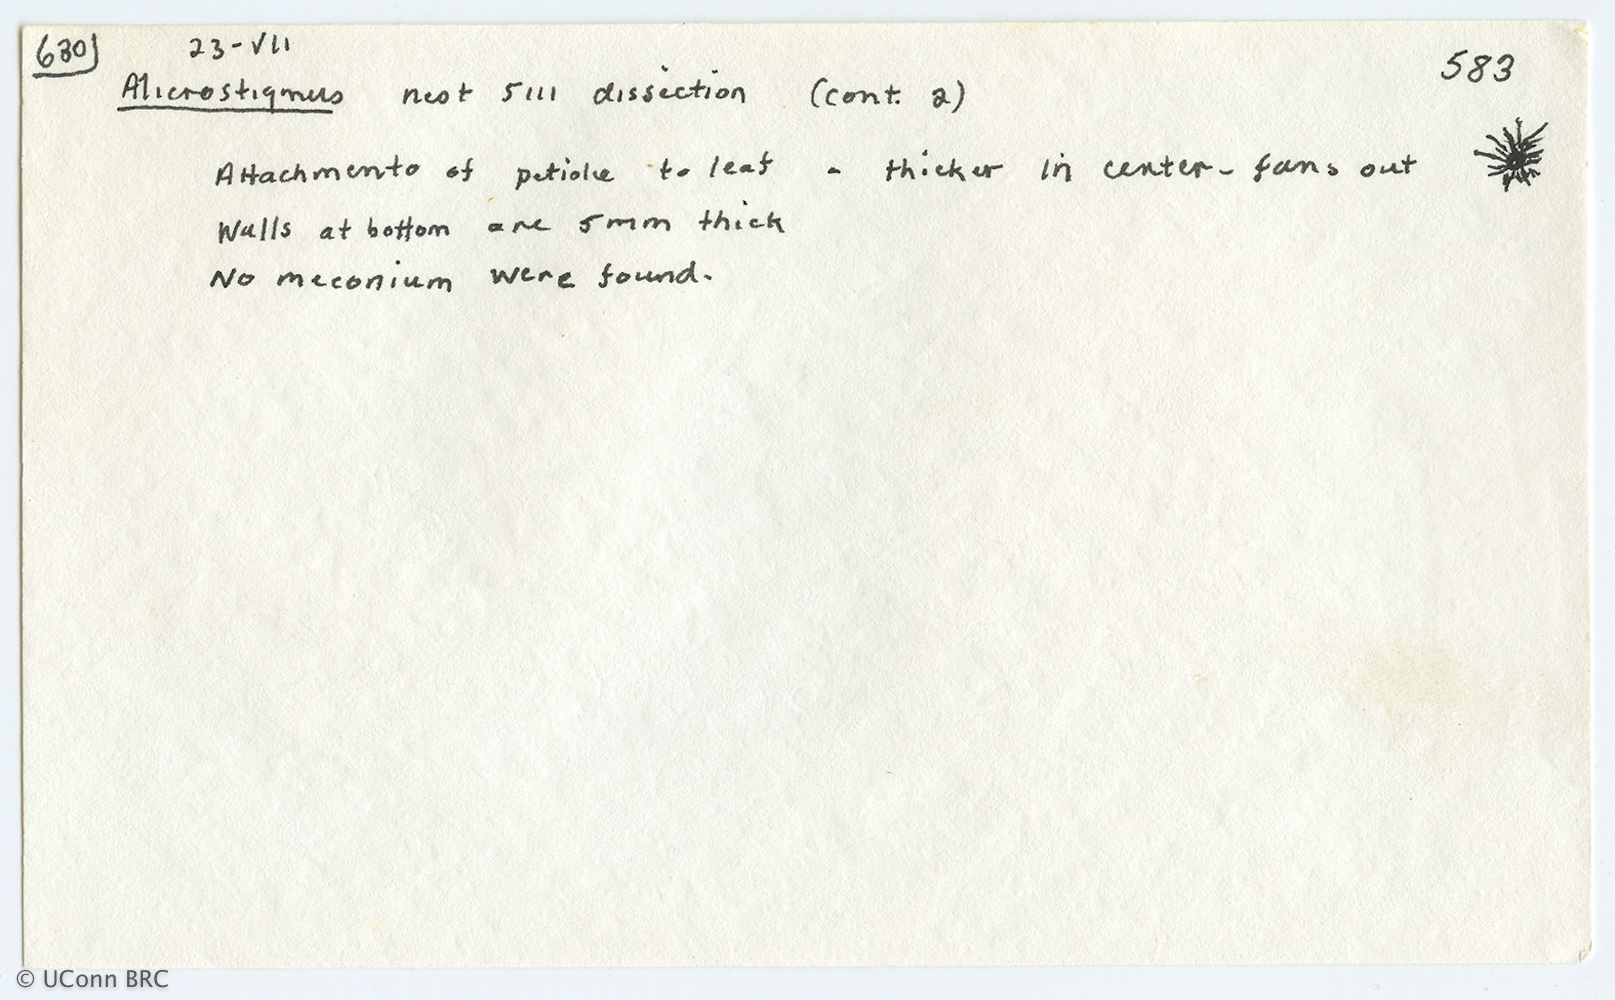 630 23-VII 583
Microstigmus nest 5111 dissection (cont. 2)
Attachments of petiole to leaf - thicker in center - fans out
Walls at bottom are 5mm thick
No meconium were found.
© UConn BRC